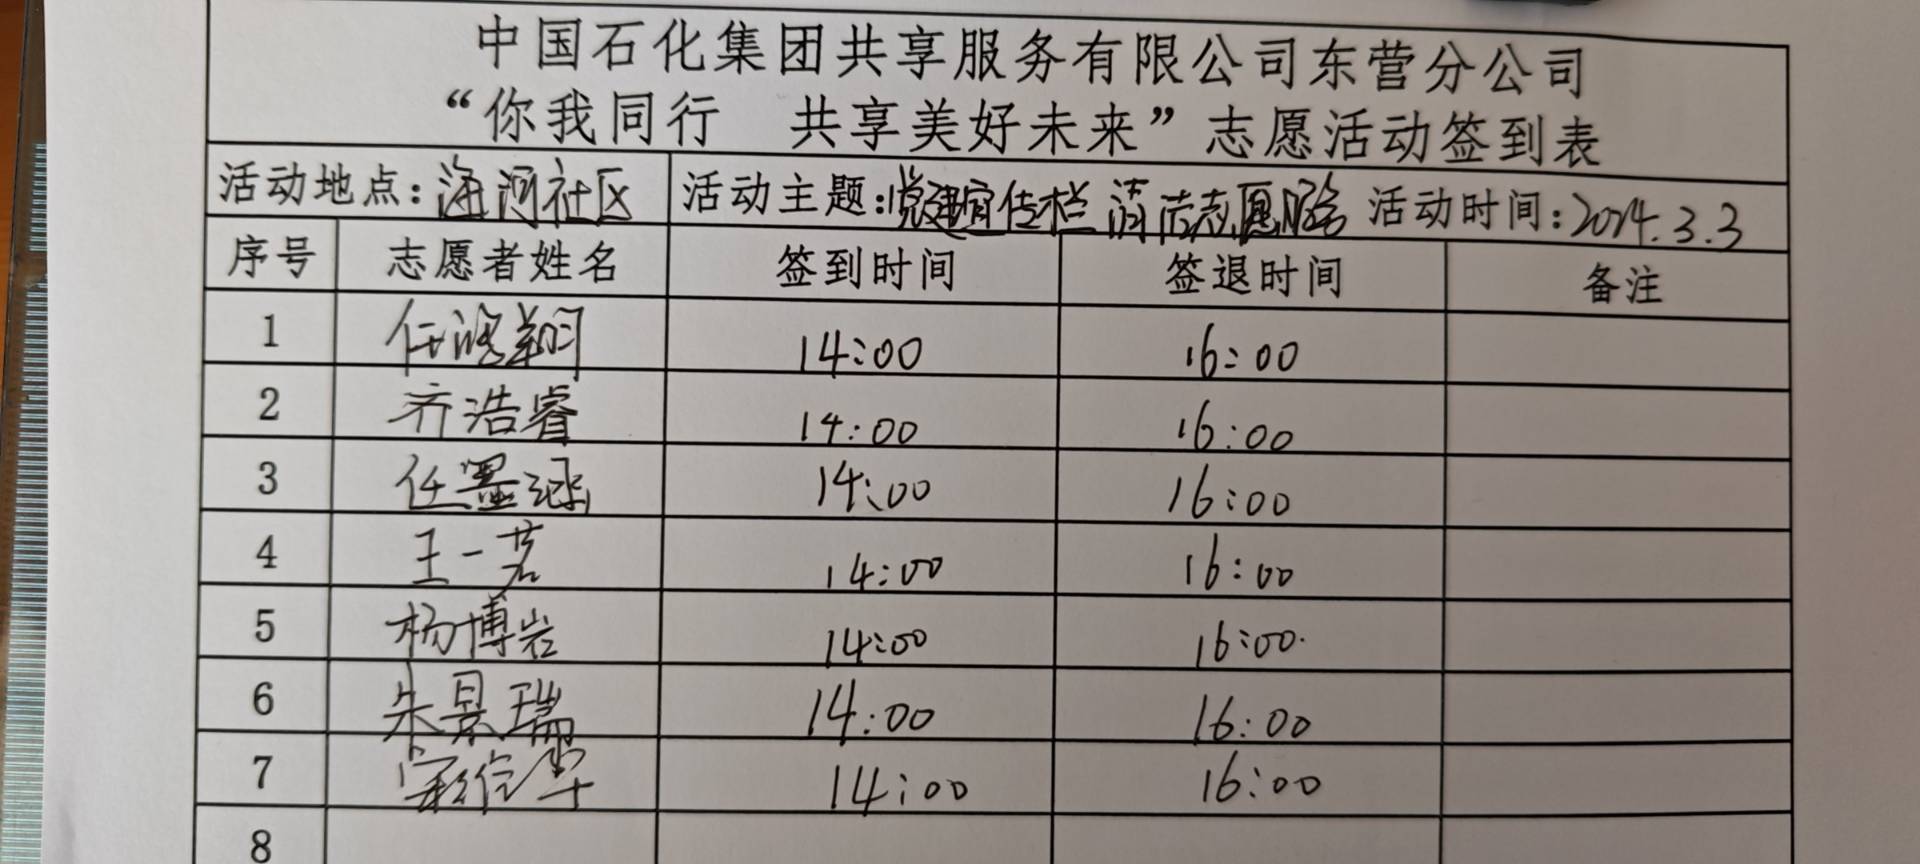 中国石化集团共享服务有限公司东营分公司
“你我同行 共享美好未来”志愿活动签到表
活动地点：海河社区 活动主题：党建宣传栏清洁志愿服务 活动时间：2024.3.3
序号 志愿者姓名 签到时间 签退时间 备注
1 任鸿翔 14:00 16:00
2 齐浩睿 14:00 16:00
3 任墨涵 14:00 16:00
4 王一茗 14:00 16:00
5 杨博岩 14:00 16:00
6 朱景瑞 14:00 16:00
7 14:00 16:00
8